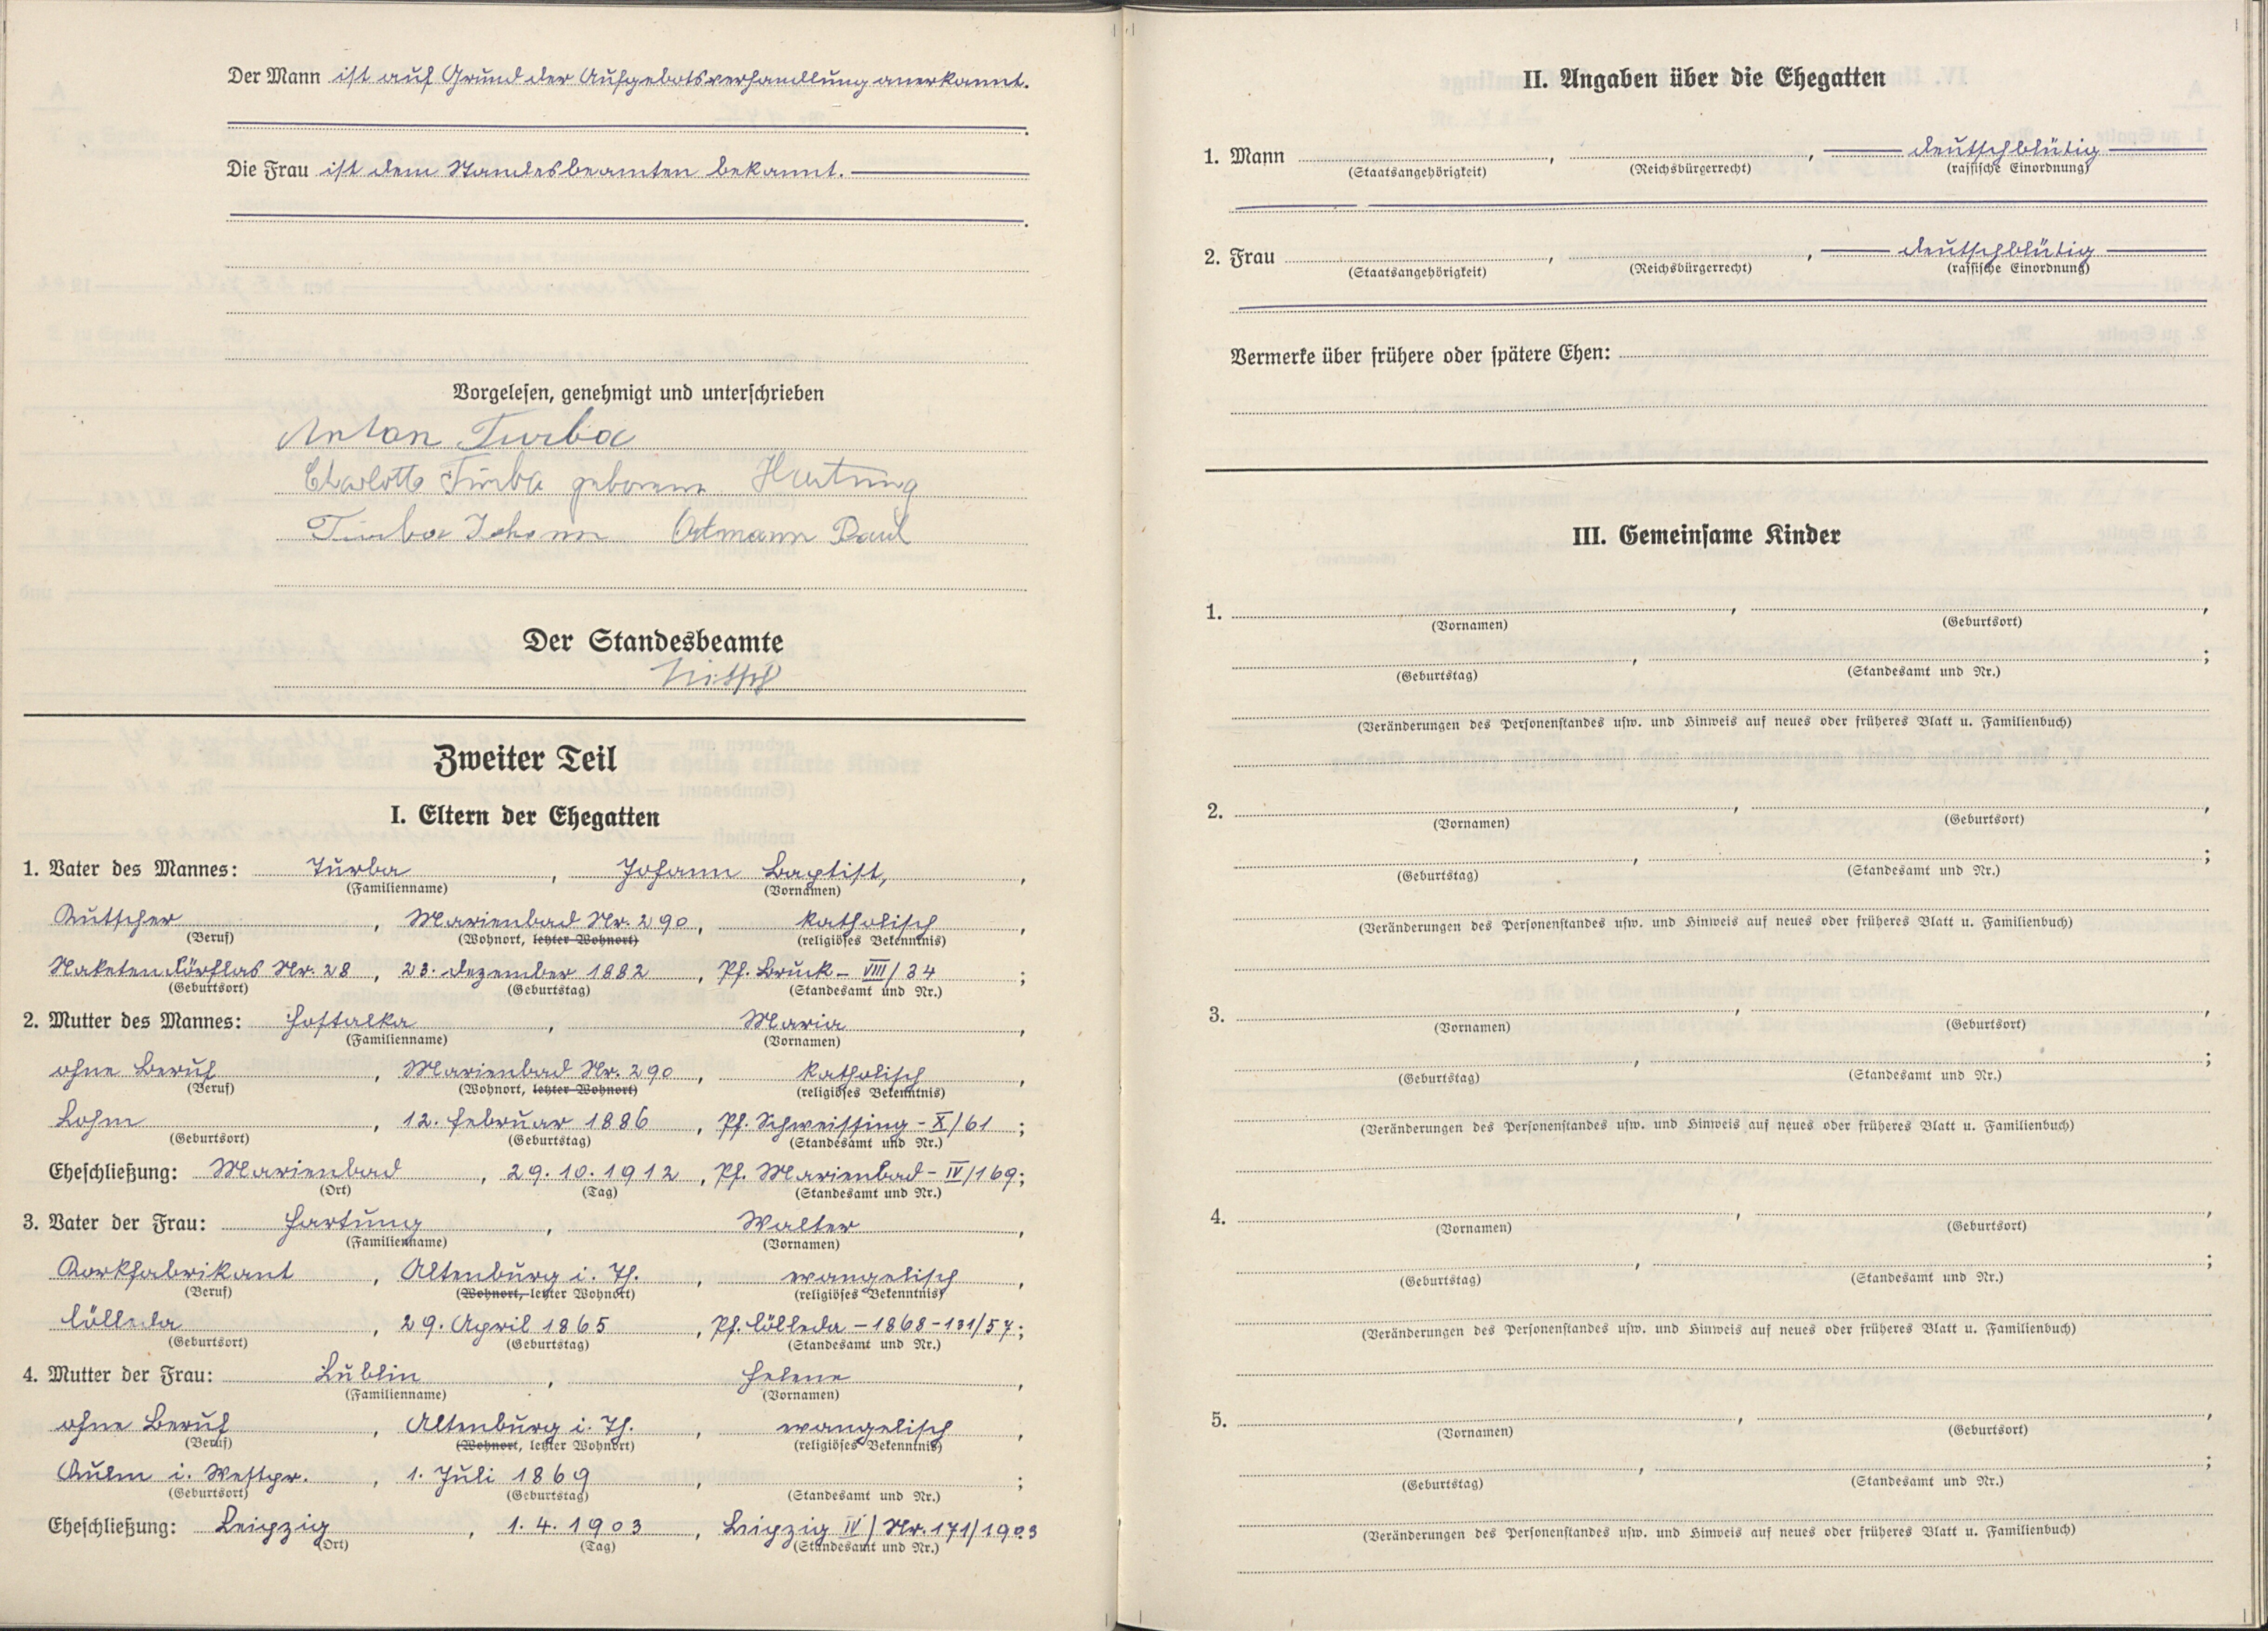 Der Mann ist auf Grund der Aufgebotsverhandlung anerkannt.
Die Frau ist dem Standesbeamten bekannt.
Vorgelesen, genehmigt und unterschrieben
Anton Turba
Charlotte Turba geborene Hartung
Turba Johann Ortmann Paul
Der Standesbeamte
Zweiter Teil
I. Eltern der Ehegatten
1. Vater des Mannes: Turba, Johann Baptist,
(Familienname) (Vornamen)
Kutscher, Marienbad Nr. 290, katholisch,
(Beruf) (Wohnort, letzter Wohnort) (religiöses Bekenntnis)
Naketendörflas Nr. 28, 23. Dezember 1882, Pf. Bruck - VIII/34;
(Geburtsort) (Geburtstag) (Standesamt und Nr.)
2. Mutter des Mannes: Hostalka, Maria,
(Familienname) (Vornamen)
ohne Beruf, Marienbad Nr. 290, katholisch,
(Beruf) (Wohnort, letzter Wohnort) (religiöses Bekenntnis)
Lohm, 12. Februar 1886, Pf. Schweissing - X/61;
(Geburtsort) (Geburtstag) (Standesamt und Nr.)
Eheschließung: Marienbad, 29.10.1912, Pf. Marienbad - IV/169;
(Ort) (Tag) (Standesamt und Nr.)
3. Vater der Frau: Hartung, Walter,
(Familienname) (Vornamen)
Korkfabrikant, Altenburg i. Th., evangelisch,
(Beruf) (Wohnort, letzter Wohnort) (religiöses Bekenntnis)
Cölleda, 29. April 1865, Pf. Cölleda - 1868 - 131/57;
(Geburtsort) (Geburtstag) (Standesamt und Nr.)
4. Mutter der Frau: Lublin, Helene,
(Familienname) (Vornamen)
ohne Beruf, Altenburg i. Th., evangelisch,
(Beruf) (Wohnort, letzter Wohnort) (religiöses Bekenntnis)
Kulm i. Westpr., 1. Juli 1869, ;
(Geburtsort) (Geburtstag) (Standesamt und Nr.)
Eheschließung: Leipzig, 1.4.1903, Leipzig IV/Nr. 171/1903
(Ort) (Tag) (Standesamt und Nr.)
II. Angaben über die Ehegatten
1. Mann , , deutschblütig
(Staatsangehörigkeit) (Reichsbürgerrecht) (rassische Einordnung)
2. Frau , , deutschblütig
(Staatsangehörigkeit) (Reichsbürgerrecht) (rassische Einordnung)
Vermerke über frühere oder spätere Ehen:
III. Gemeinsame Kinder
1. , ,
(Vornamen) (Geburtsort)
, ;
(Geburtstag) (Standesamt und Nr.)
(Veränderungen des Personenstandes usw. und Hinweis auf neues oder früheres Blatt u. Familienbuch)
2. , ,
(Vornamen) (Geburtsort)
, ;
(Geburtstag) (Standesamt und Nr.)
(Veränderungen des Personenstandes usw. und Hinweis auf neues oder früheres Blatt u. Familienbuch)
3. , ,
(Vornamen) (Geburtsort)
, ;
(Geburtstag) (Standesamt und Nr.)
(Veränderungen des Personenstandes usw. und Hinweis auf neues oder früheres Blatt u. Familienbuch)
4. , ,
(Vornamen) (Geburtsort)
, ;
(Geburtstag) (Standesamt und Nr.)
(Veränderungen des Personenstandes usw. und Hinweis auf neues oder früheres Blatt u. Familienbuch)
5. , ,
(Vornamen) (Geburtsort)
, ;
(Geburtstag) (Standesamt und Nr.)
(Veränderungen des Personenstandes usw. und Hinweis auf neues oder früheres Blatt u. Familienbuch)